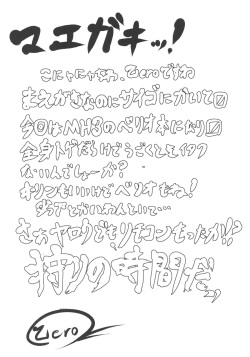 マエガキッ!
こにゃにゃちわ、Zeroですね
まえがきなのにサイゴにかいて〼
今回はMH3のベリオ本になり〼
全身トゲだらけでうごくとイタク
ないんでしょーか?
オリンもいいけどベリオもね!
さあヤロウどもリチコンもったか!?
狩りの時間だッ
Zero